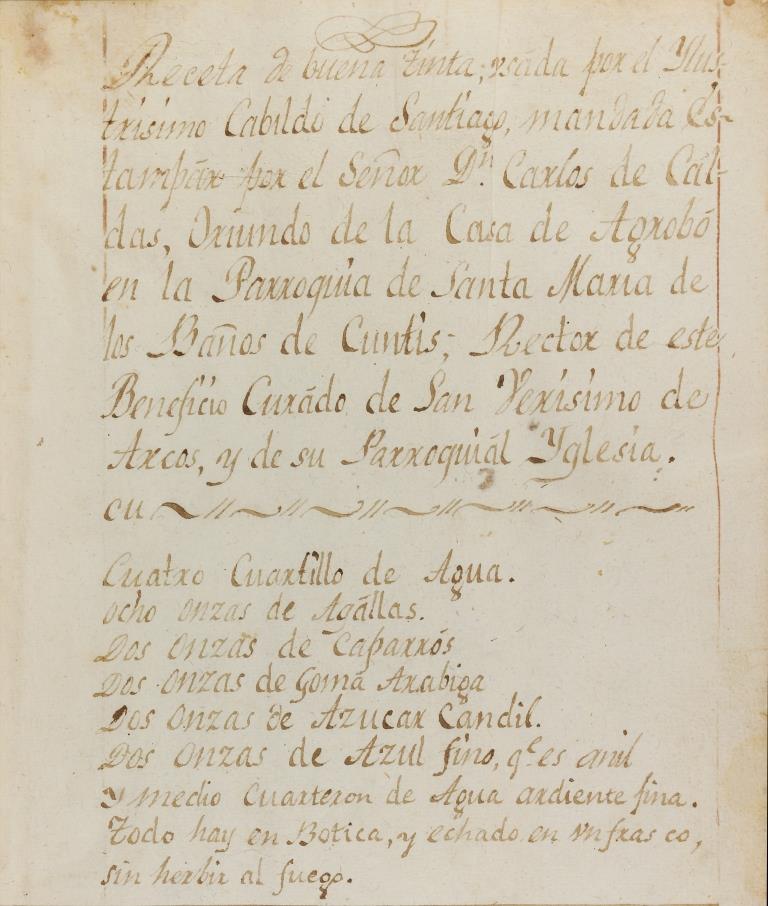 Receta de buena tinta, vsáda por el Ylus-
trisimo Cabildo de Santiago, mandada És-
tampár por el Señor Dn. Carlos de Cál-
das, Oriundo de la Casa de Agrobó
en la Parroquia de Santa Maria de
los Baños de Cuntis; Rector de este
Beneficio Curádo de San Verisimo de
Arcos, y de su Parroquiál Yglesia.
cu
Cuatro Cuartillo de Agua.
ocho onzas de Agállas.
Dos Onzas de Caparrós
Dos onzas de Gomá Arabiga
Dos Onzas de Azucar Cándil.
Dos Onzas de Azul fino, qe. es anil
Y medio Cuarteron de Agua ardiente fina.
Todo hay en Botica, y echado en vn frasco,
sin herbir al fuego.